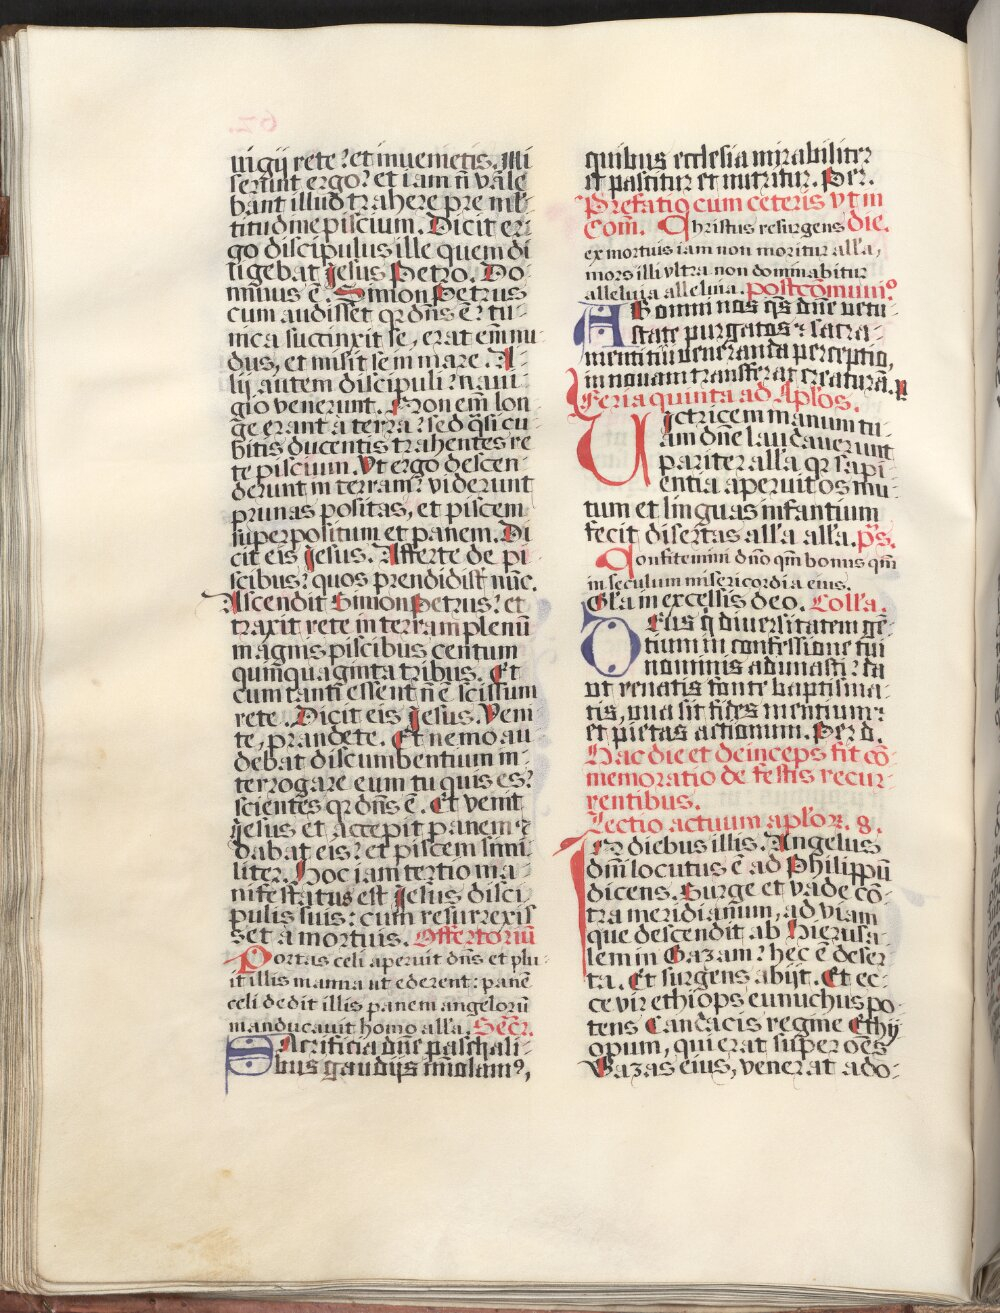 uigij rete? et inuenietis. Mi
serunt ergo? et iam nō vale
bant illud trahere pre ml̄
titudine piscium. Dicit er-
go discipulus ille quem di
ligebat Iesus Petro. Do-
minus ē. Simon Petrus
cum audisset qr dn̄s ē? tu-
nica succinxit se, erat em̄ nu
dus, et misit se in mare. A-
lij autem discipuli? naui-
gio venerunt. Non em̄ lon
ge erant a terra? sed q̄si cu
bitis ducentis trahentes re
te piscium. Vt ergo descen
derunt in terram? viderunt
prunas positas, et piscem
superpositum et panem. Di
cit eis Iesus. Afferte de pi
scibus? quos prendidist nūc.
Ascendit Simon Petrus? et
traxit rete in terram plenū
magnis piscibus centum
quinquaginta tribus. Et
cum tanti essent nō ē scissum
rete. Dicit eis Iesus. Veni
te, prandete. Et nemo au
debat discumbentium in-
terrogare eum tu quis es?
scientes qr dn̄s ē. Et venit
Iesus et accepit panem?
dabat eis? et piscem simi
liter. Hoc iam tertio ma-
nifestatus est Iesus disci
pulis suis: cum resurrexis
set a mortuis. Offertoriū
Portas celi aperuit dn̄s et plu-
it illis manna ut ederent: panē
celi dedit illis panem angelorū
manducauit homo alľa. Secr.
Sacrificia dn̄e paschali-
bus gaudijs imolam⁹,
quibus ecclesia mirabiliter
et pascitur et nutritur. Per.
Prefatio cum ceteris vt in
Com̄. Christus resurgens die.
ex mortuis iam non moritur alľa,
mors illi vltra non dominabitur
alleluia alleluia. postcōmuni⁰
AB omni nos q̄s dn̄e vetu-
state purgatos: sacra-
menti tui veneranda perceptio,
in nouam transferat creaturā. P
Feria quinta ad Apľos.
Victricem manum tu-
am dn̄e laudauerunt
pariter alľa qr sapi
entia aperuit os mu-
tum et linguas infantium
fecit disertas alľa alľa. p̄s.
Confitemini dn̄o qm̄ bonus qm̄
in seculum misericordia eius.
Gľa in excelsis deo. Colľa.
DEus q̄ diuersitatem gē-
tium in confessione tui
nominis adunasti: da
ut renatis fonte baptisma-
tis, una sit fides mentium:
et pietas actionum. Per d.
Hac die et deinceps fit cō-
memoratio de festis recur-
rentibus.
Lectio actuum apľoꝝ. 8.
IN diebus illis. Angelus
dn̄i locutus ē ad Philippū
dicens. Surge et vade cō-
tra meridianum, ad viam
que descendit ab Hierusa-
lem in Gazam? hec ē deser
ta. Et surgens abijt. Et ec-
ce vir ethiops eunuchus po-
tens Candacis regine Ethy
opum, qui erat super oēs
Gazas eius, venerat ado-